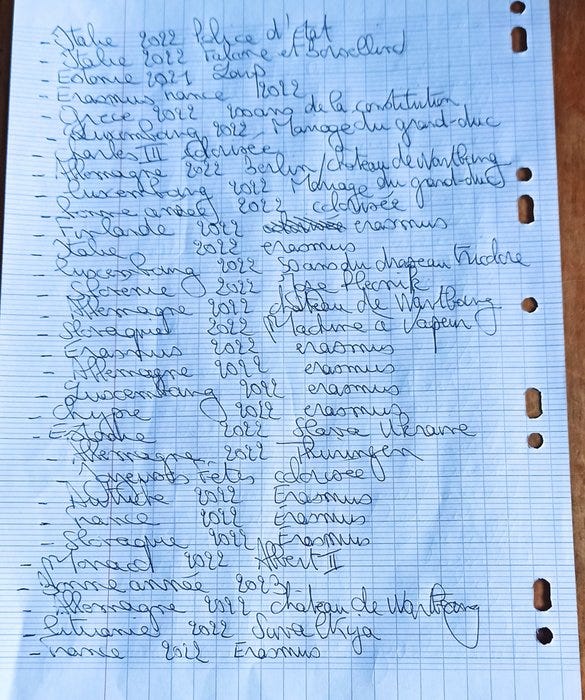 - Italie 2022 Police d'Etat
- Italie 2022 Falcone et Borsellino
- Estonie 2021 Loup
- Erasmus France 2022
- Grèce 2022 200 ans de la constitution
- Luxembourg 2022 Mariage du grand-duc
- Charles III colorisée
- Allemagne 2022 Berlin/château de Wartburg
- Luxembourg 2022 Mariage du grand-duc
- Bonne année 2022 colorisée
- Finlande 2022 erasmus
- Italie 2022 erasmus
- Luxembourg 2022 50 ans du drapeau tricolore
- Slovénie 2022 Plecnik
- Allemagne 2022 château de Wartbourg
- Slovaquie 2022 Machine à vapeur
- Erasmus 2022 erasmus
- Allemagne 2022 erasmus
- Luxembourg 2022 erasmus
- Chypre 2022 erasmus
- Estonie 2022 Slava Ukraine
- Allemagne 2022 Thuringen
- Joyeuses Fêtes colorisée
- Autriche 2022 Erasmus
- France 2022 Erasmus
- Slovaquie 2022 Erasmus
- Monaco 2022 Albert II
- Bonne année 2023
- Allemagne 2022 château de Wartbourg
- Lituanie 2022 Suvalkija
- France 2022 Erasmus